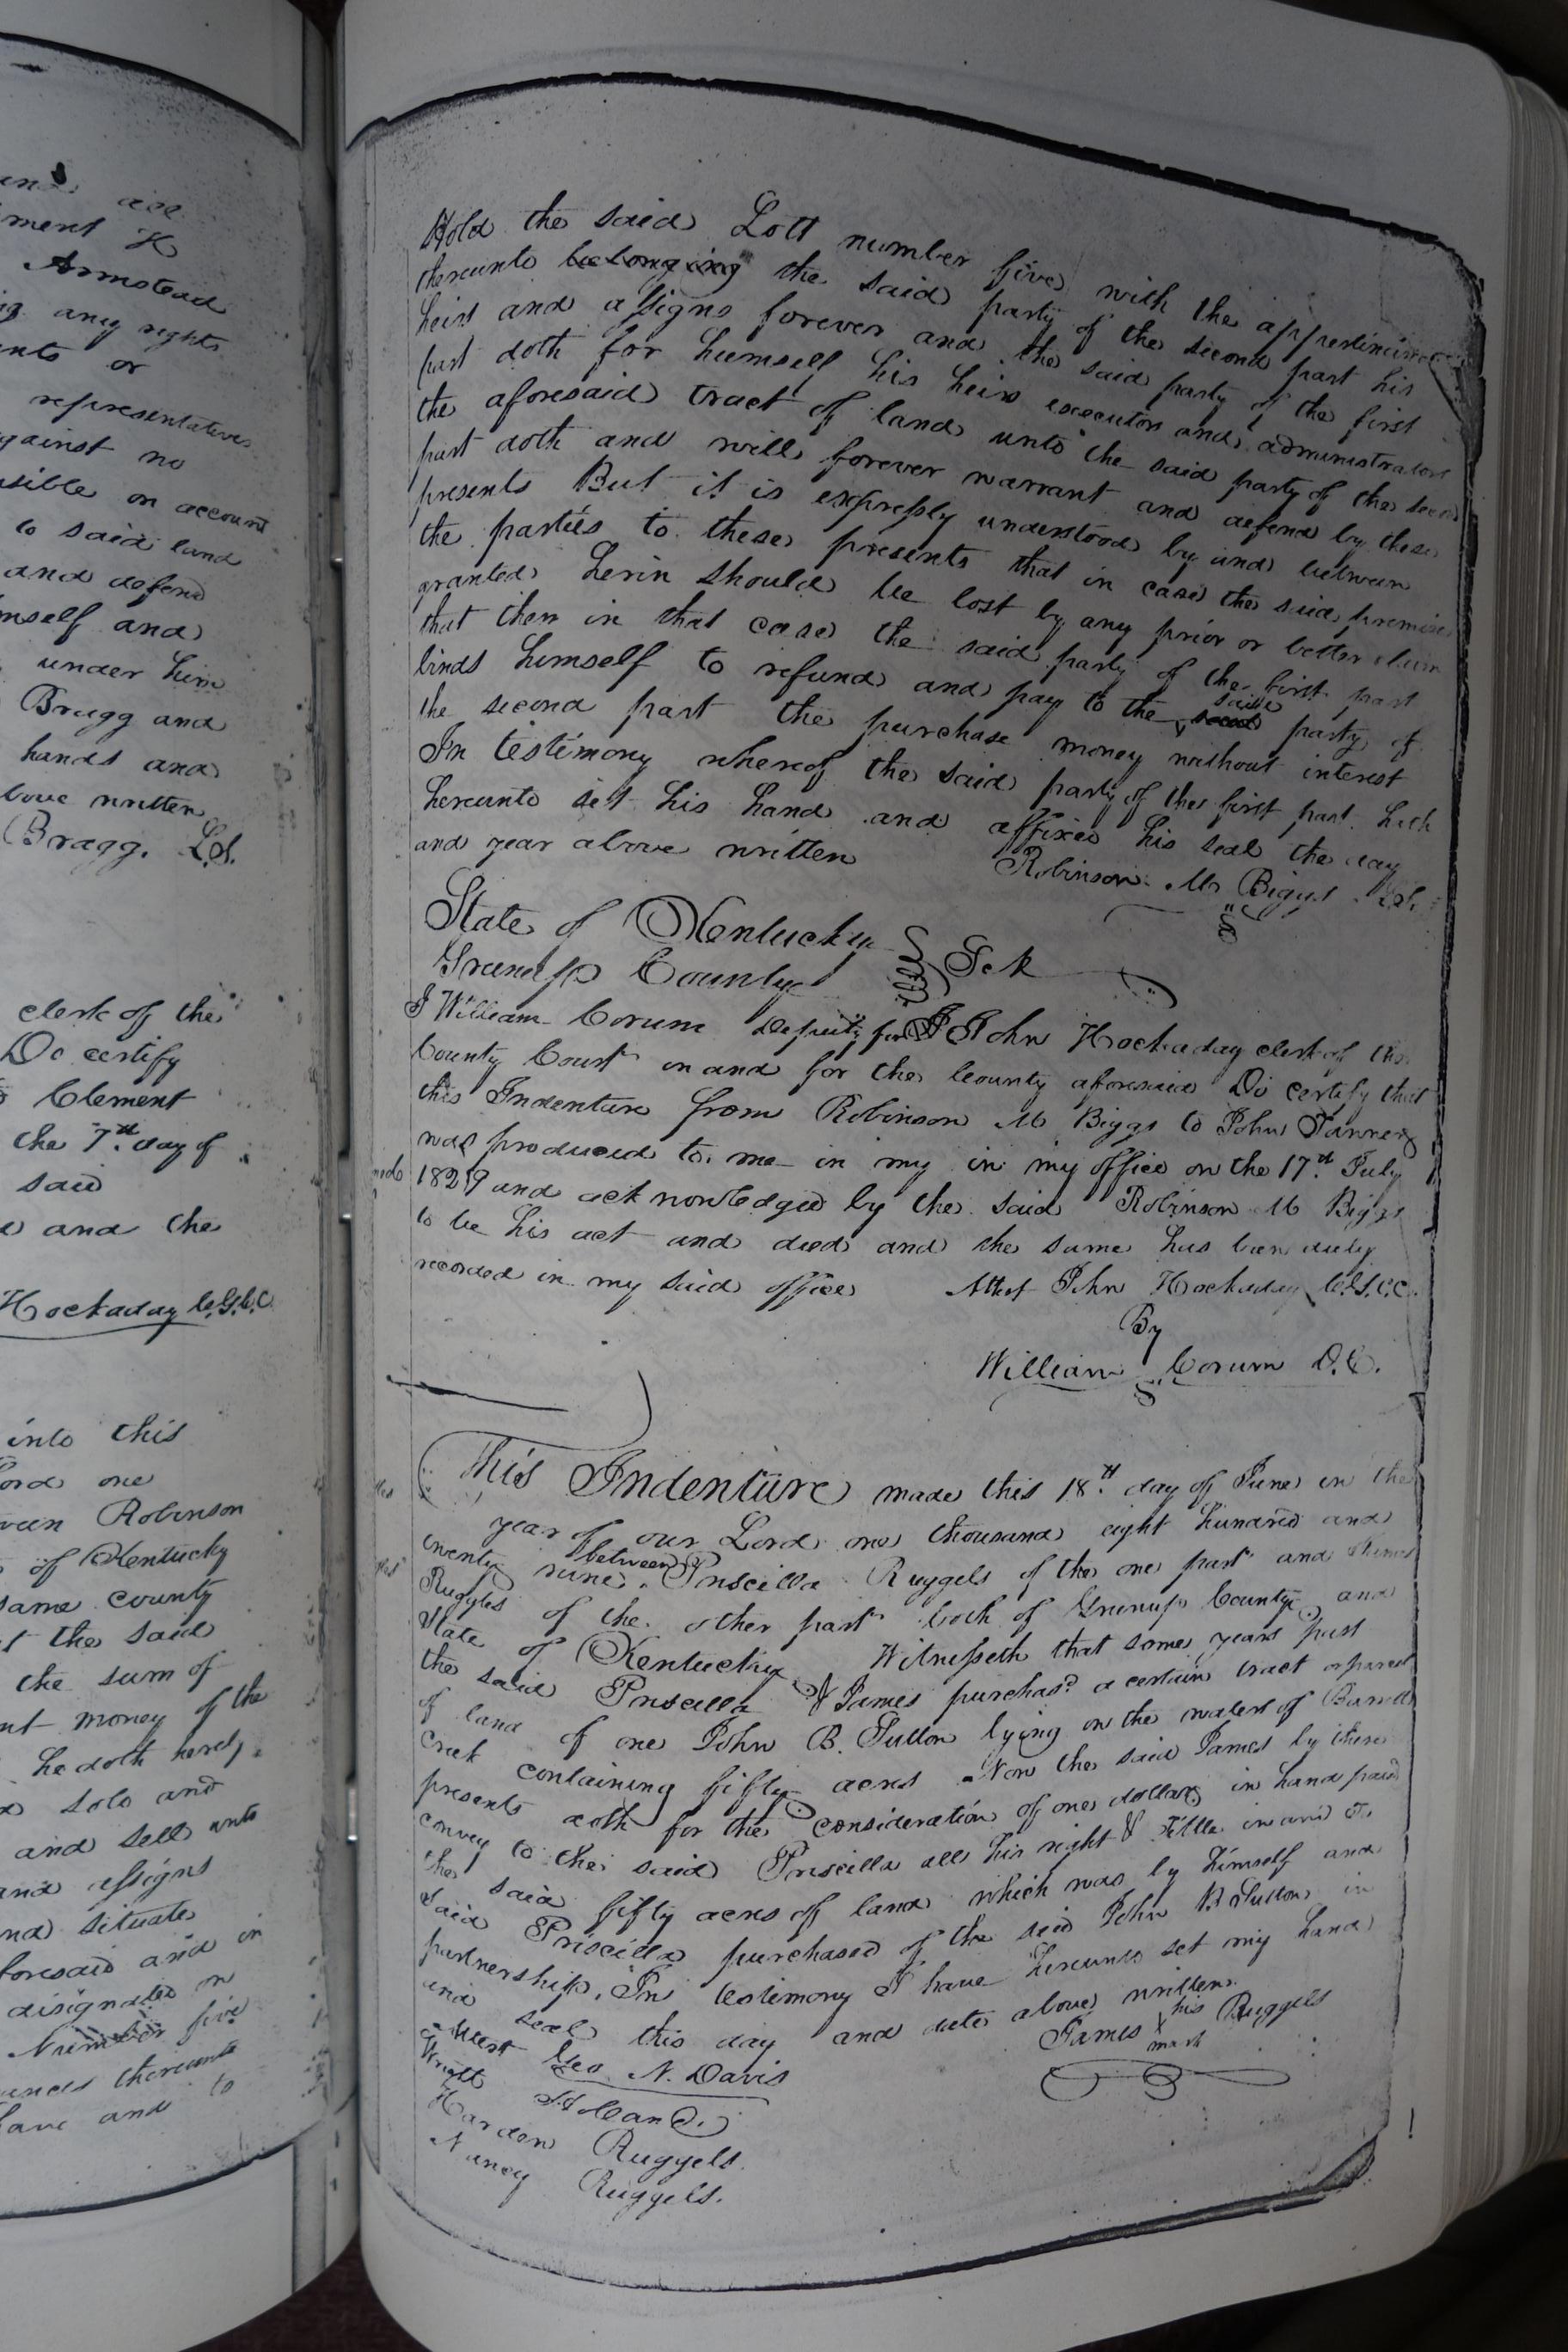 ment H
Armstead
any rights
or
representatives
against no
on account
to said land
and defend
himself and
under him
Bragg and
hands and
above written
Bragg. L.S.
clerk of the
Do certify
Clement
the 7th day of
said
and the
Hockaday C.G.C.C.
into this
Lord one
Robinson
of Kentucky
same county
the said
the sum of
money of the
he doth hereby
sold and
and sell unto
and assigns
situate
aforesaid and in
designated on
Number five
thereunto
have and to
Hold the said Lott number five with the appurtinences
thereunto belonging the said party of the second part his
heirs and assigns forever and the said party of the first
part doth for humself his heirs executors and administrators
the aforesaid tract of land unto the said party of the second
part doth and will forever warrant and defend by these
presents But it is expressly understood by and between
the parties to these presents that in case the said premises
granted herin should be lost by any prior or better claim
that then in that case the said party of the first part
binds himself to refund and pay to the said party of
the second part the purchase money without interest
In testimony whereof the said party of the first part hath
hereunto set his hand and affixed his seal the day
and year above written Robinson M Biggs L.S.
State of Kentucky
Greenup County Sct
I William Corum Deputy for John Hockaday clerk of the
County Court in and for the County aforesaid Do certify that
this Indenture from Robinson M Biggs to John Tanner
was produced to me in my in my office on the 17th July
1829 and acknowledged by the said Robinson M Biggs
to be his act and deed and the same has been duly
recorded in my said office Attest John Hockaday C.G.C.C.
By
William Corum D.C.
This Indenture made this 18th day of June in the
year of our Lord one thousand eight hundred and
twenty nine between Priscilla Ruggels of the one part and James
Ruggles of the other part both of Greenup County and
State of Kentucky Witnesseth that some years past
the said Priscilla & James purchasd a certain tract or parcel
of land of one John B. Sutton lying on the waters of
Creek containing fifty acres Now the said James by these
presents doth for the consideration of one dollar in hand paid
convey to the said Priscilla all his right & title in and to
the said fifty acres of land which was by himself and
said Priscilla purchased of the said John B Sutton in
partnership. In testimony I have hereunto set my hand
and seal this day and date above written.
Attest Geo. N. Davis James his X mark Ruggels
Harden Ruggels.
Nancy Ruggels.